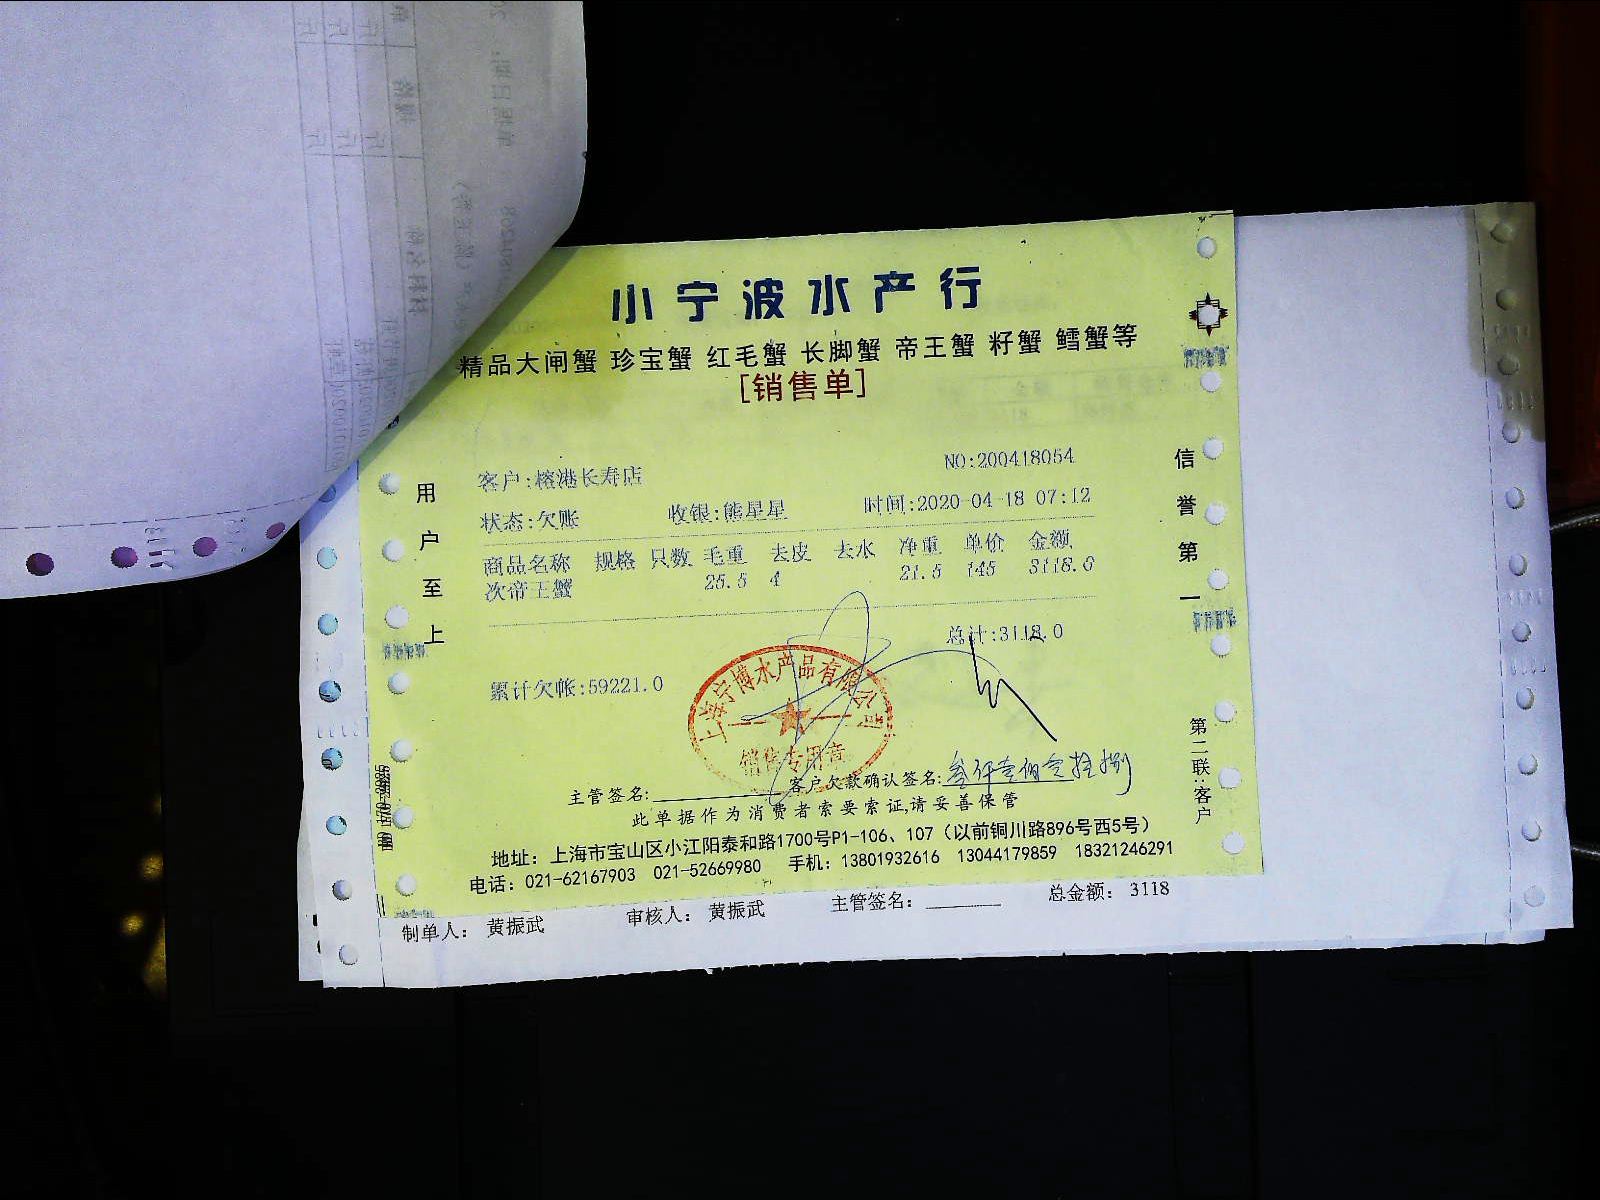 小宁波水产行
精品大闸蟹 珍宝蟹 红毛蟹 长脚蟹 帝王蟹 籽蟹 鳕蟹等
[销售单]
NO:200418054
客户:榕港长寿店
状态:欠账 收银:熊星星 时间:2020-04-18 07:12
商品名称 规格 只数 毛重 去皮 去水 净重 单价 金额
次帝王蟹 25.5 4 21.5 145 3118.0
总计:3118.0
累计欠帐:59221.0
上海宁博水产品有限公司
销售专用章
主管签名: 客户欠款确认签名:叁仟壹佰壹拾捌
此单据作为消费者索要索证,请妥善保管
地址：上海市宝山区小江阳泰和路1700号P1-106、107（以前铜川路896号西5号）
电话：021-62167903 021-52669980 手机：13801932616 13044179859 18321246291
用户至上
信誉第一
第二联:客户
制单人： 黄振武 审核人： 黄振武 主管签名： 总金额： 3118